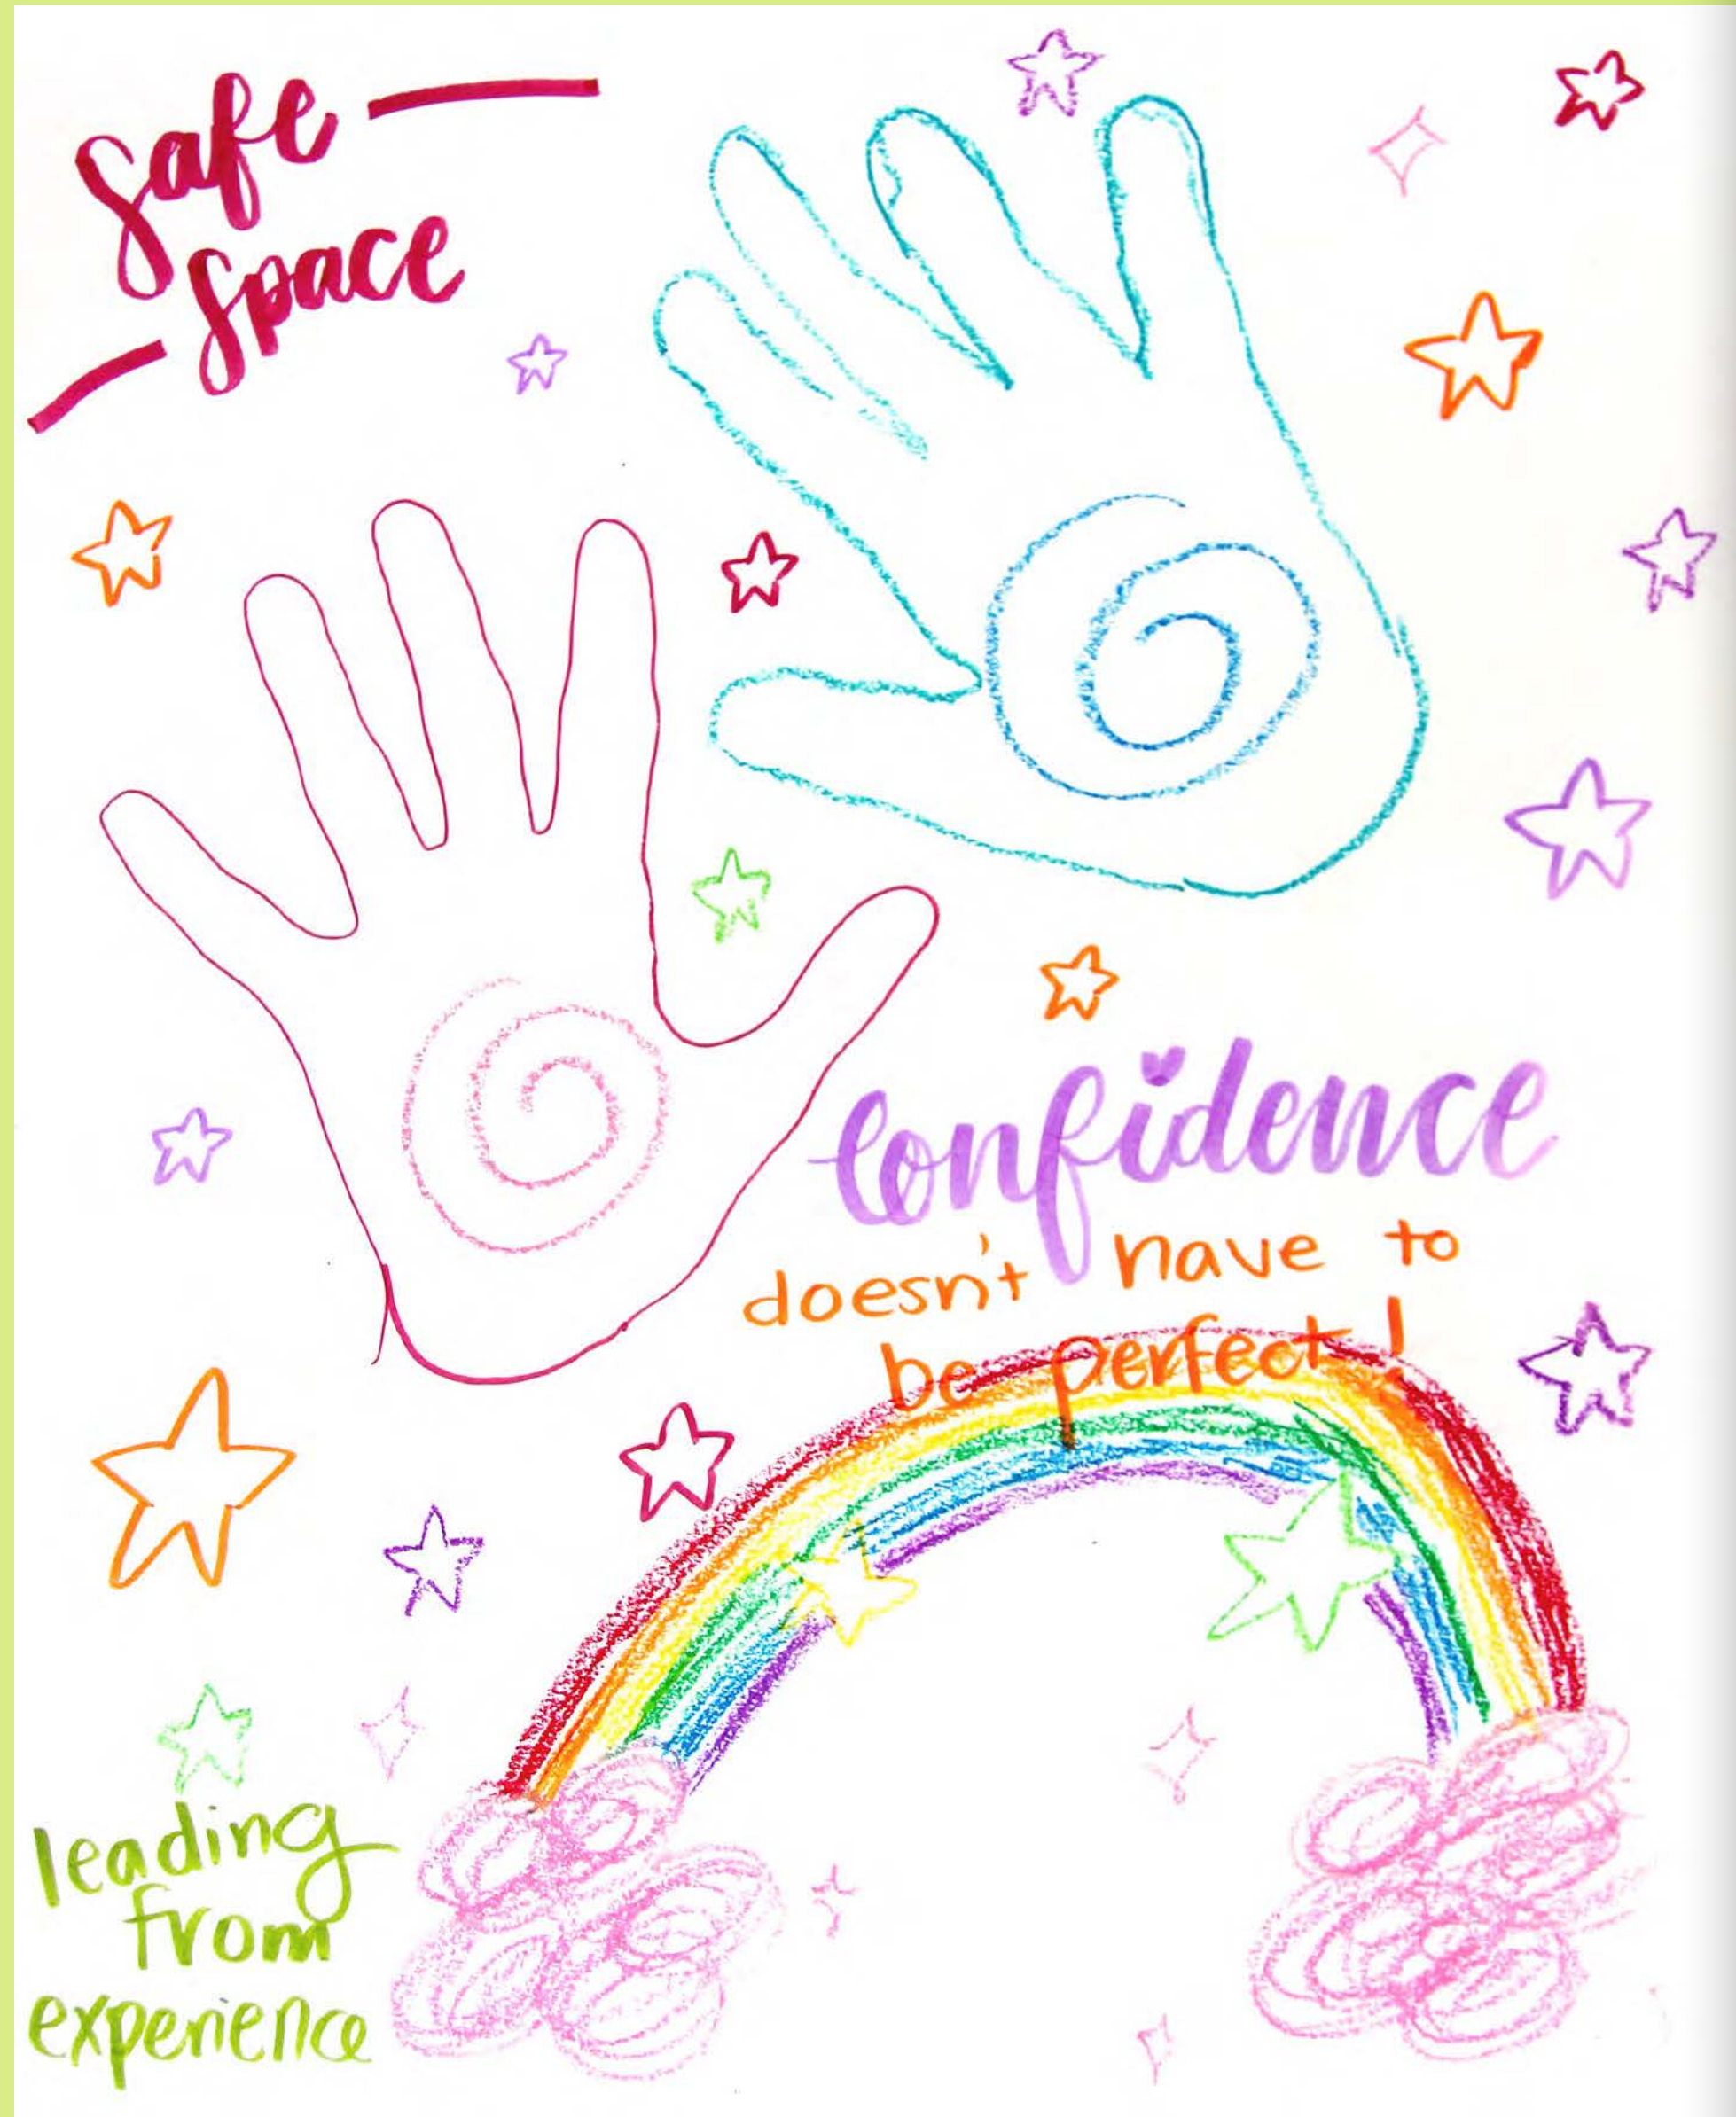 Safe
Space
Confidence
doesn't have to
be perfect!
leading
from
experience